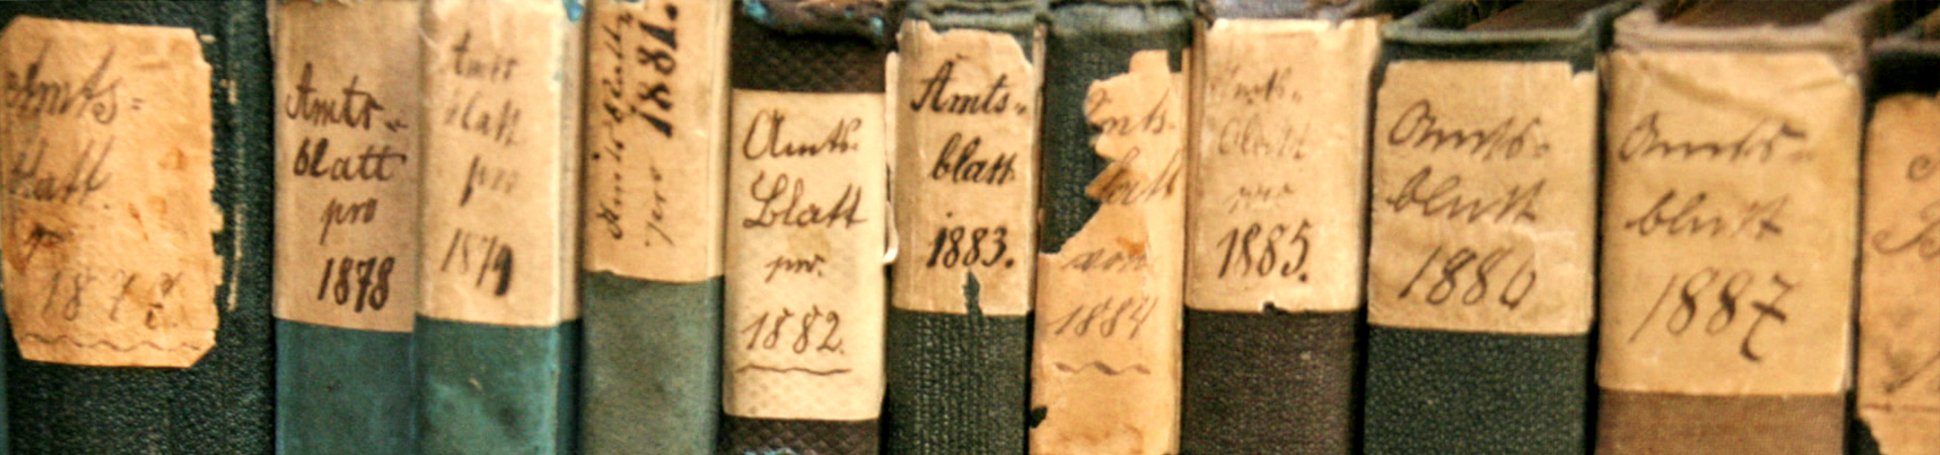 Amts-
blatt
pro
187
Amts-
blatt
pro
1878
Amts
blatt
pro
1879
Amtsblatt
pro 1881.
Amts-
Blatt
pro.
1882.
Amts-
blatt
1883.
Amts-
blatt
von
1884
Amts-
blatt
pro
1885.
Amts-
blatt
1886
Amts-
blatt
1887